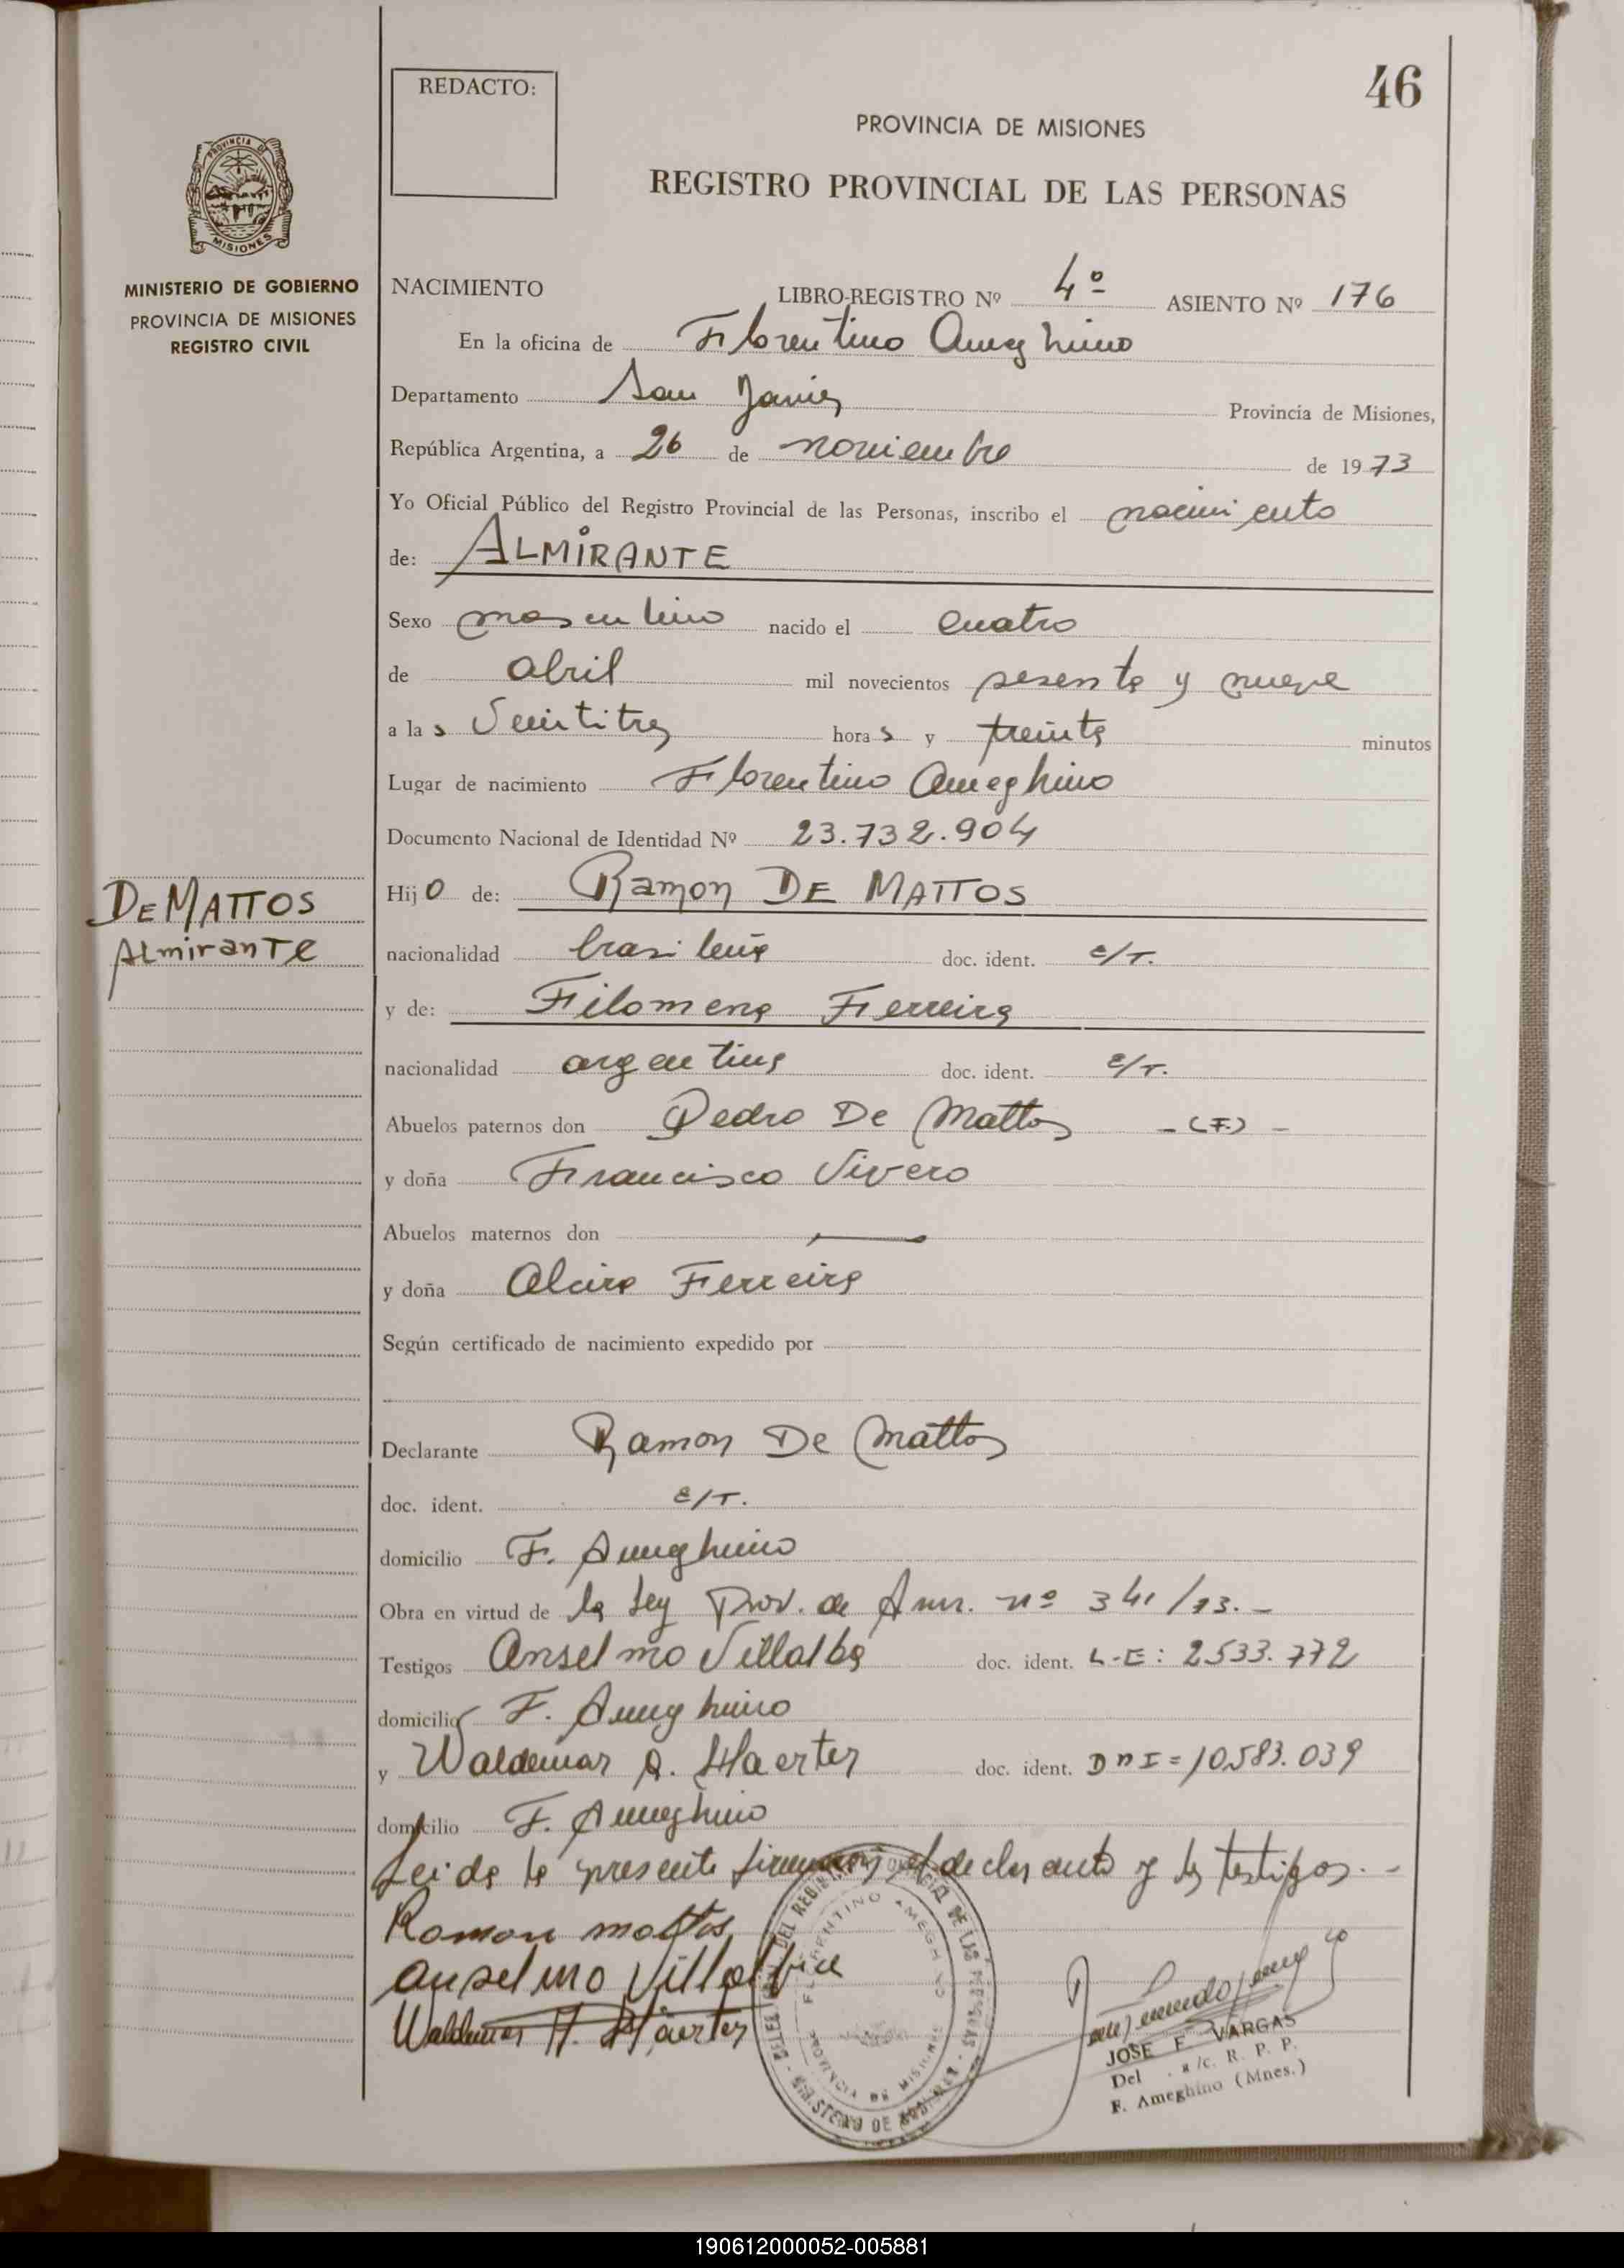 46
REDACTO:
PROVINCIA DE MISIONES
REGISTRO PROVINCIAL DE LAS PERSONAS
PROVINCIA DE
MISIONES
MINISTERIO DE GOBIERNO
PROVINCIA DE MISIONES
REGISTRO CIVIL
NACIMIENTO LIBRO-REGISTRO Nº 4º ASIENTO Nº 176
En la oficina de Florentino Ameghino
Departamento San Javier Provincia de Misiones,
República Argentina, a 26 de noviembre de 1973
Yo Oficial Público del Registro Provincial de las Personas, inscribo el nacimiento
de: ALMIRANTE
Sexo masculino nacido el cuatro
de abril mil novecientos sesenta y nueve
a las veintitres horas y treinta minutos
Lugar de nacimiento Florentino Ameghino
Documento Nacional de Identidad Nº 23.732.904
DE MATTOS
Almirante
Hijo de: Ramon DE MATTOS
nacionalidad brasileña doc. ident. E/T.
y de: Filomena Ferreira
nacionalidad argentina doc. ident. E/T.
Abuelos paternos don Pedro De Mattos - (F.) -
y doña Francisco Vivero
Abuelos maternos don —
y doña Alcira Ferreira
Según certificado de nacimiento expedido por
Declarante Ramon De Mattos
doc. ident. E/T.
domicilio F. Ameghino
Obra en virtud de la Ley Prov. de Amn. nº 341/73. -
Testigos Anselmo Villalba doc. ident. L-E: 2.533.772
domicilio F. Ameghino
y Waldemar A. Haerter doc. ident. DNI = 10.583.039
domicilio F. Ameghino
Leida la presente firman el declarante y los testigos. -
Ramon mattos
anselmo Villalba
Waldemar A. Haerter
FLORENTINO AMEGHINO
PROVINCIA DE MISIONES
JOSE F. VARGAS
Del a/c. R. P. P.
F. Ameghino (Mnes.)
190612000052-005881